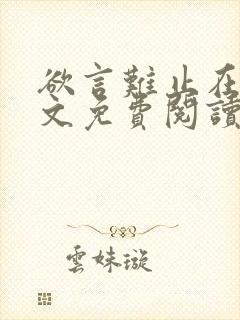 欲言難止在
文免費閱讀
雲妹璇